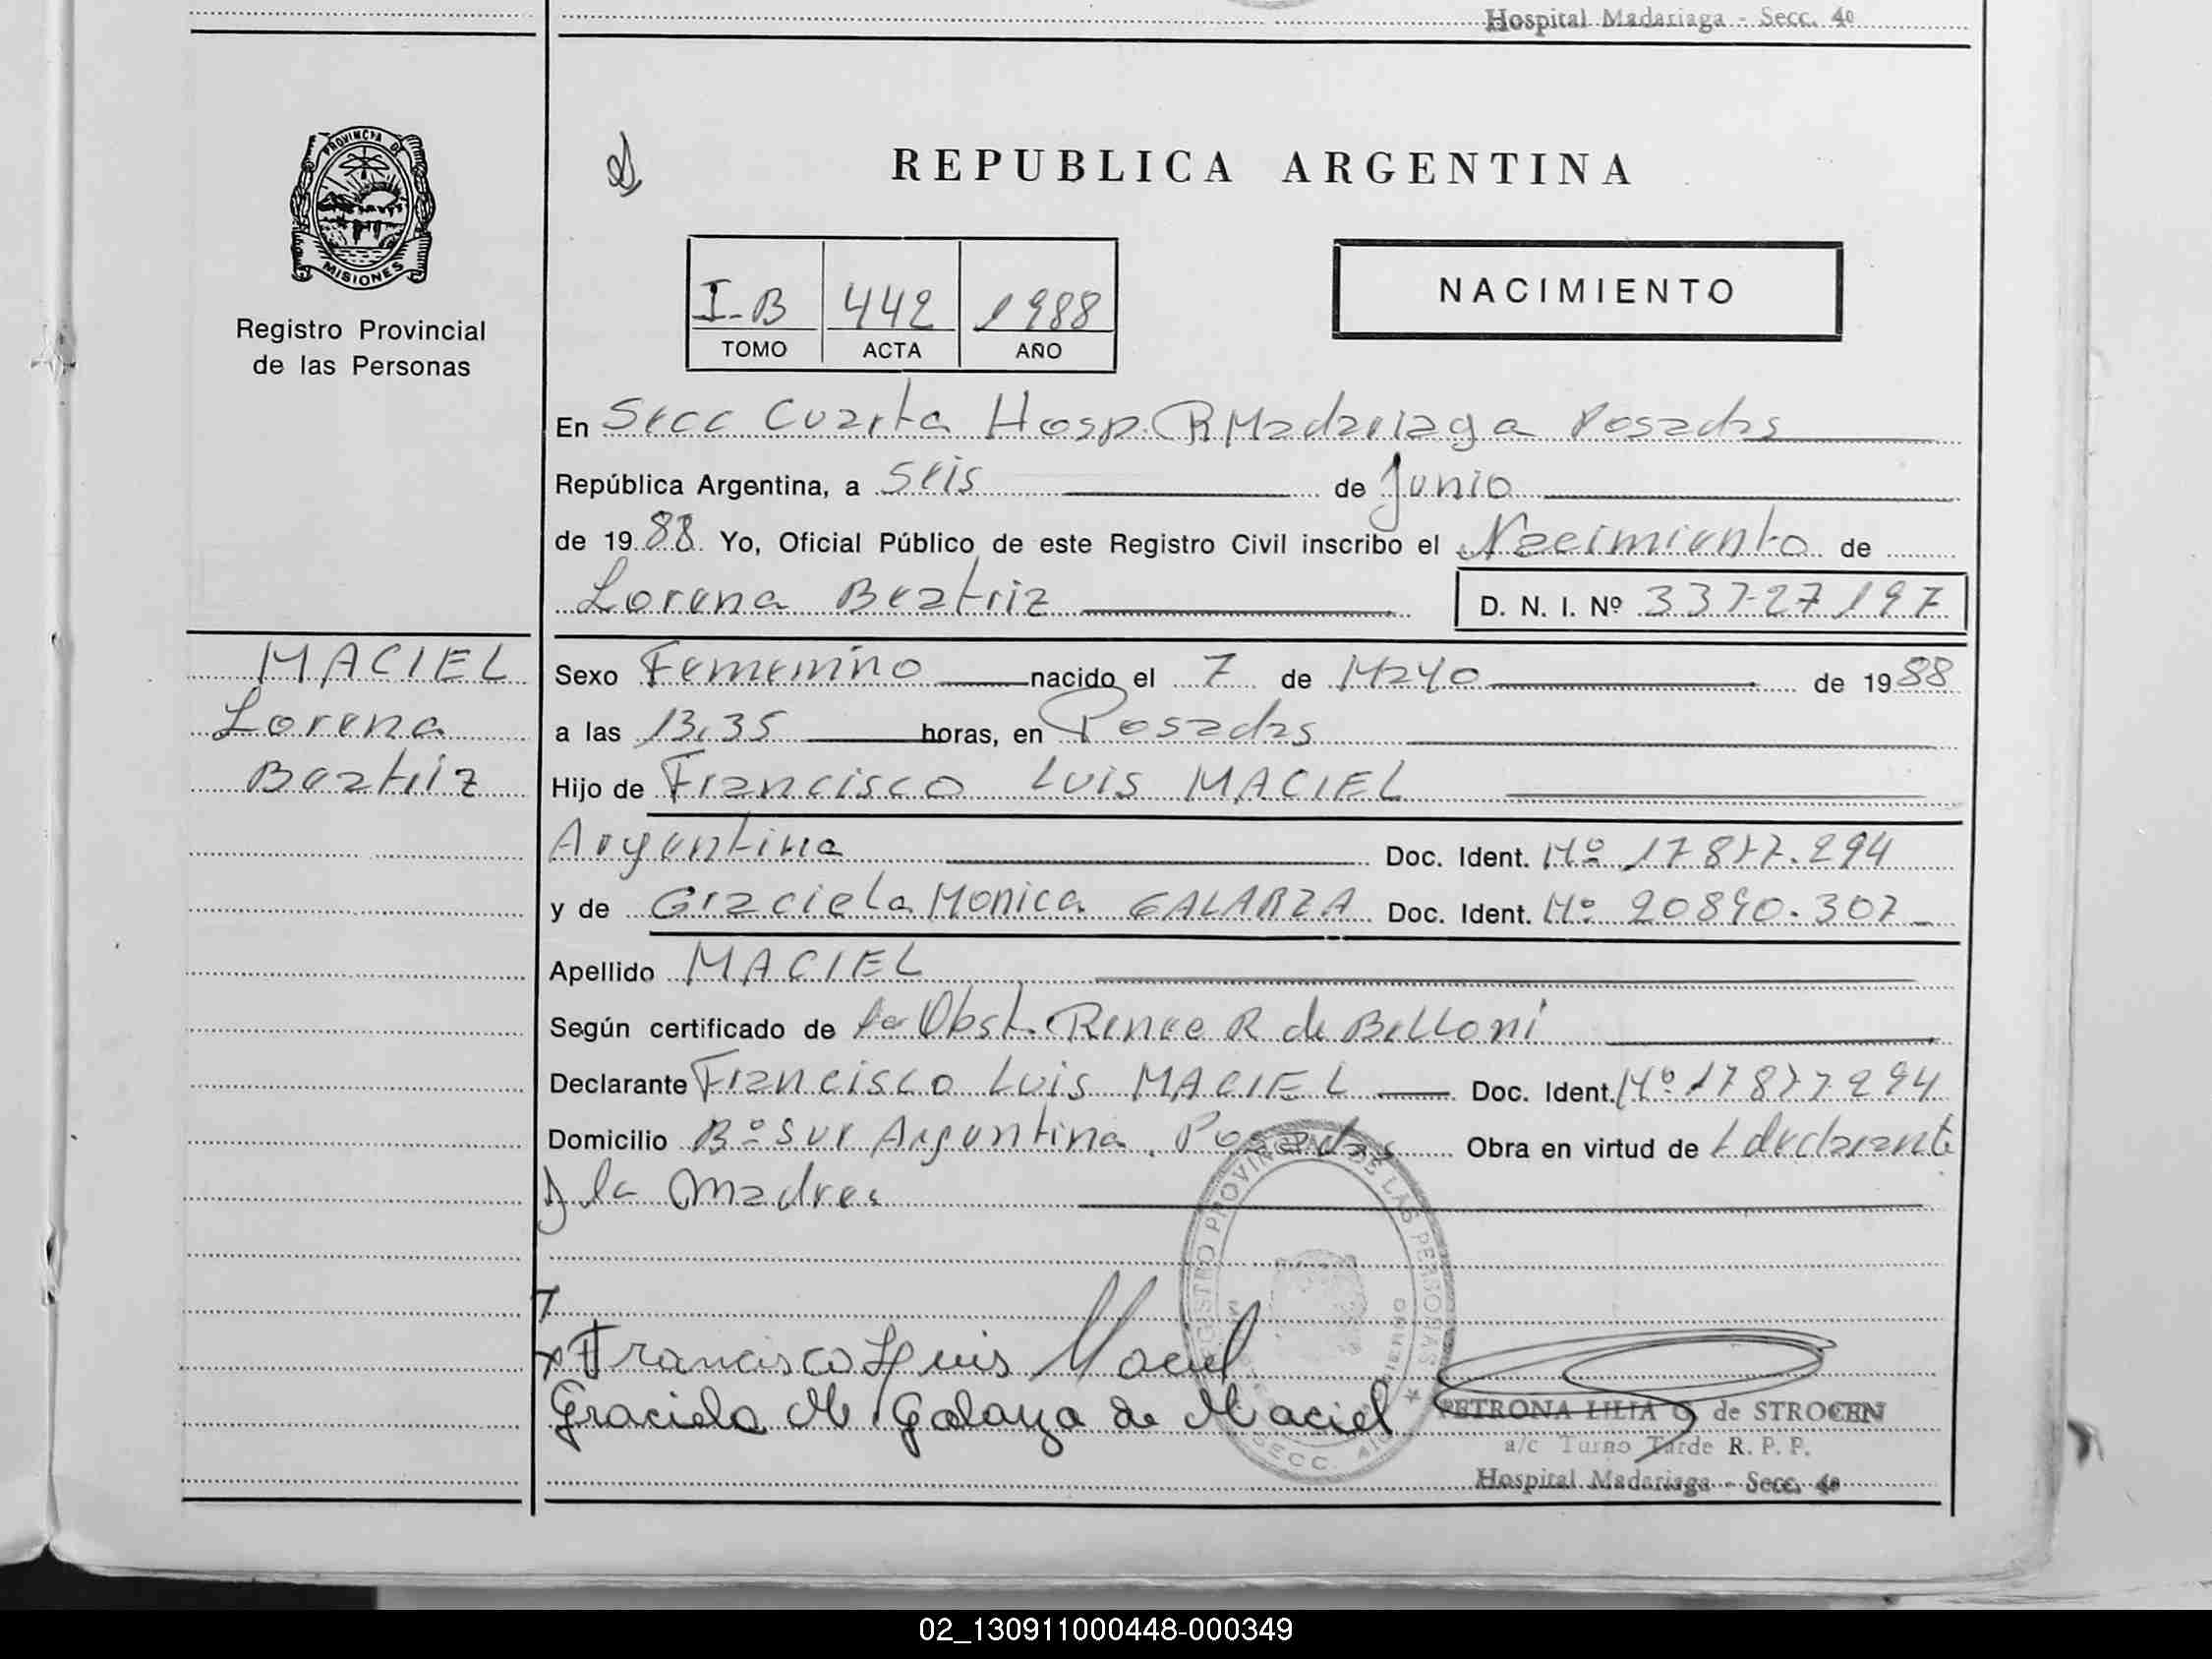 Hospital Madariaga - Secc. 4º
PROVINCIA DE
MISIONES
Registro Provincial
de las Personas
REPUBLICA ARGENTINA
I-B 442 1988
TOMO ACTA AÑO
NACIMIENTO
En Secc Cuarta Hosp. R Madariaga Posadas
República Argentina, a Seis de Junio
de 1988 Yo, Oficial Público de este Registro Civil inscribo el Nacimiento de
Lorena Beatriz D. N. I. Nº 33727197
MACIEL
Lorena
Beatriz
Sexo Femenino nacido el 7 de Mayo de 1988
a las 13,35 horas, en Posadas
Hijo de Francisco Luis MACIEL
Argentina Doc. Ident. Nº 17877.294
y de Graciela Monica GALARZA Doc. Ident. Nº 20890.307
Apellido MACIEL
Según certificado de la Obst. Renee R de Belloni
Declarante Francisco Luis MACIEL Doc. Ident. Nº 17877294
Domicilio Bº Sur Argentina. Posadas Obra en virtud de L declarante
y la Madre
REGISTRO PROVINCIAL DE LAS PERSONAS
Francisco Luis Maciel
Graciela M Galarza de Maciel
PETRONA LILIA G de STROCEN
a/c Turno Tarde R. P. P.
Hospital Madariaga - Secc. 4º
02_130911000448-000349